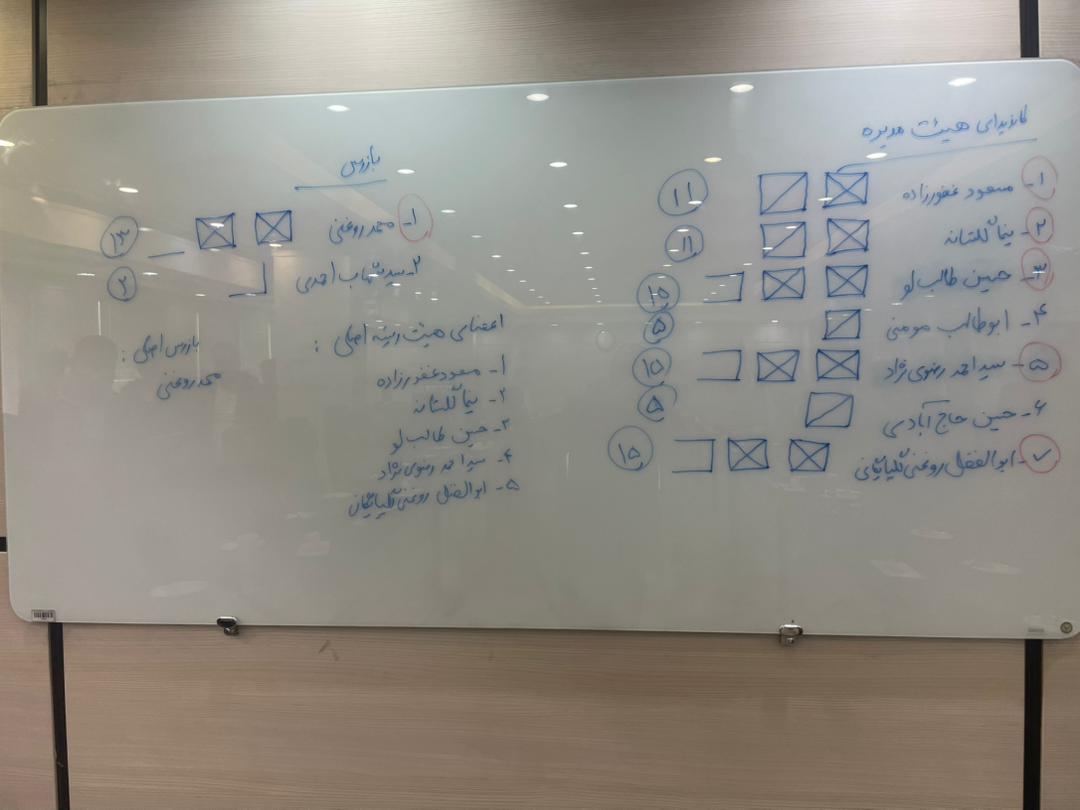 کاندیدای هیئت مدیره
۱- مسعود غفورزاده ۱۱
۲- نیما گلستانه ۱۱
۳- حسین طالب لو ۱۵
۴- ابوطالب مومنی ۵
۵- سید احمد رضوی نژاد ۱۵
۶- حسین حاج آبادی ۵
۷- ابوالفضل روغنی گلپایگانی ۱۵
بازرس
۱- محمد روغنی ۱۳
۲- سید شهاب احمدی ۲
اعضای هیئت رییسه اصلی :
۱- مسعود غفورزاده
۲- نیما گلستانه
۳- حسین طالب لو
۴- سید احمد رضوی نژاد
۵- ابوالفضل روغنی گلپایگانی
بازرس اصلی :
محمد روغنی